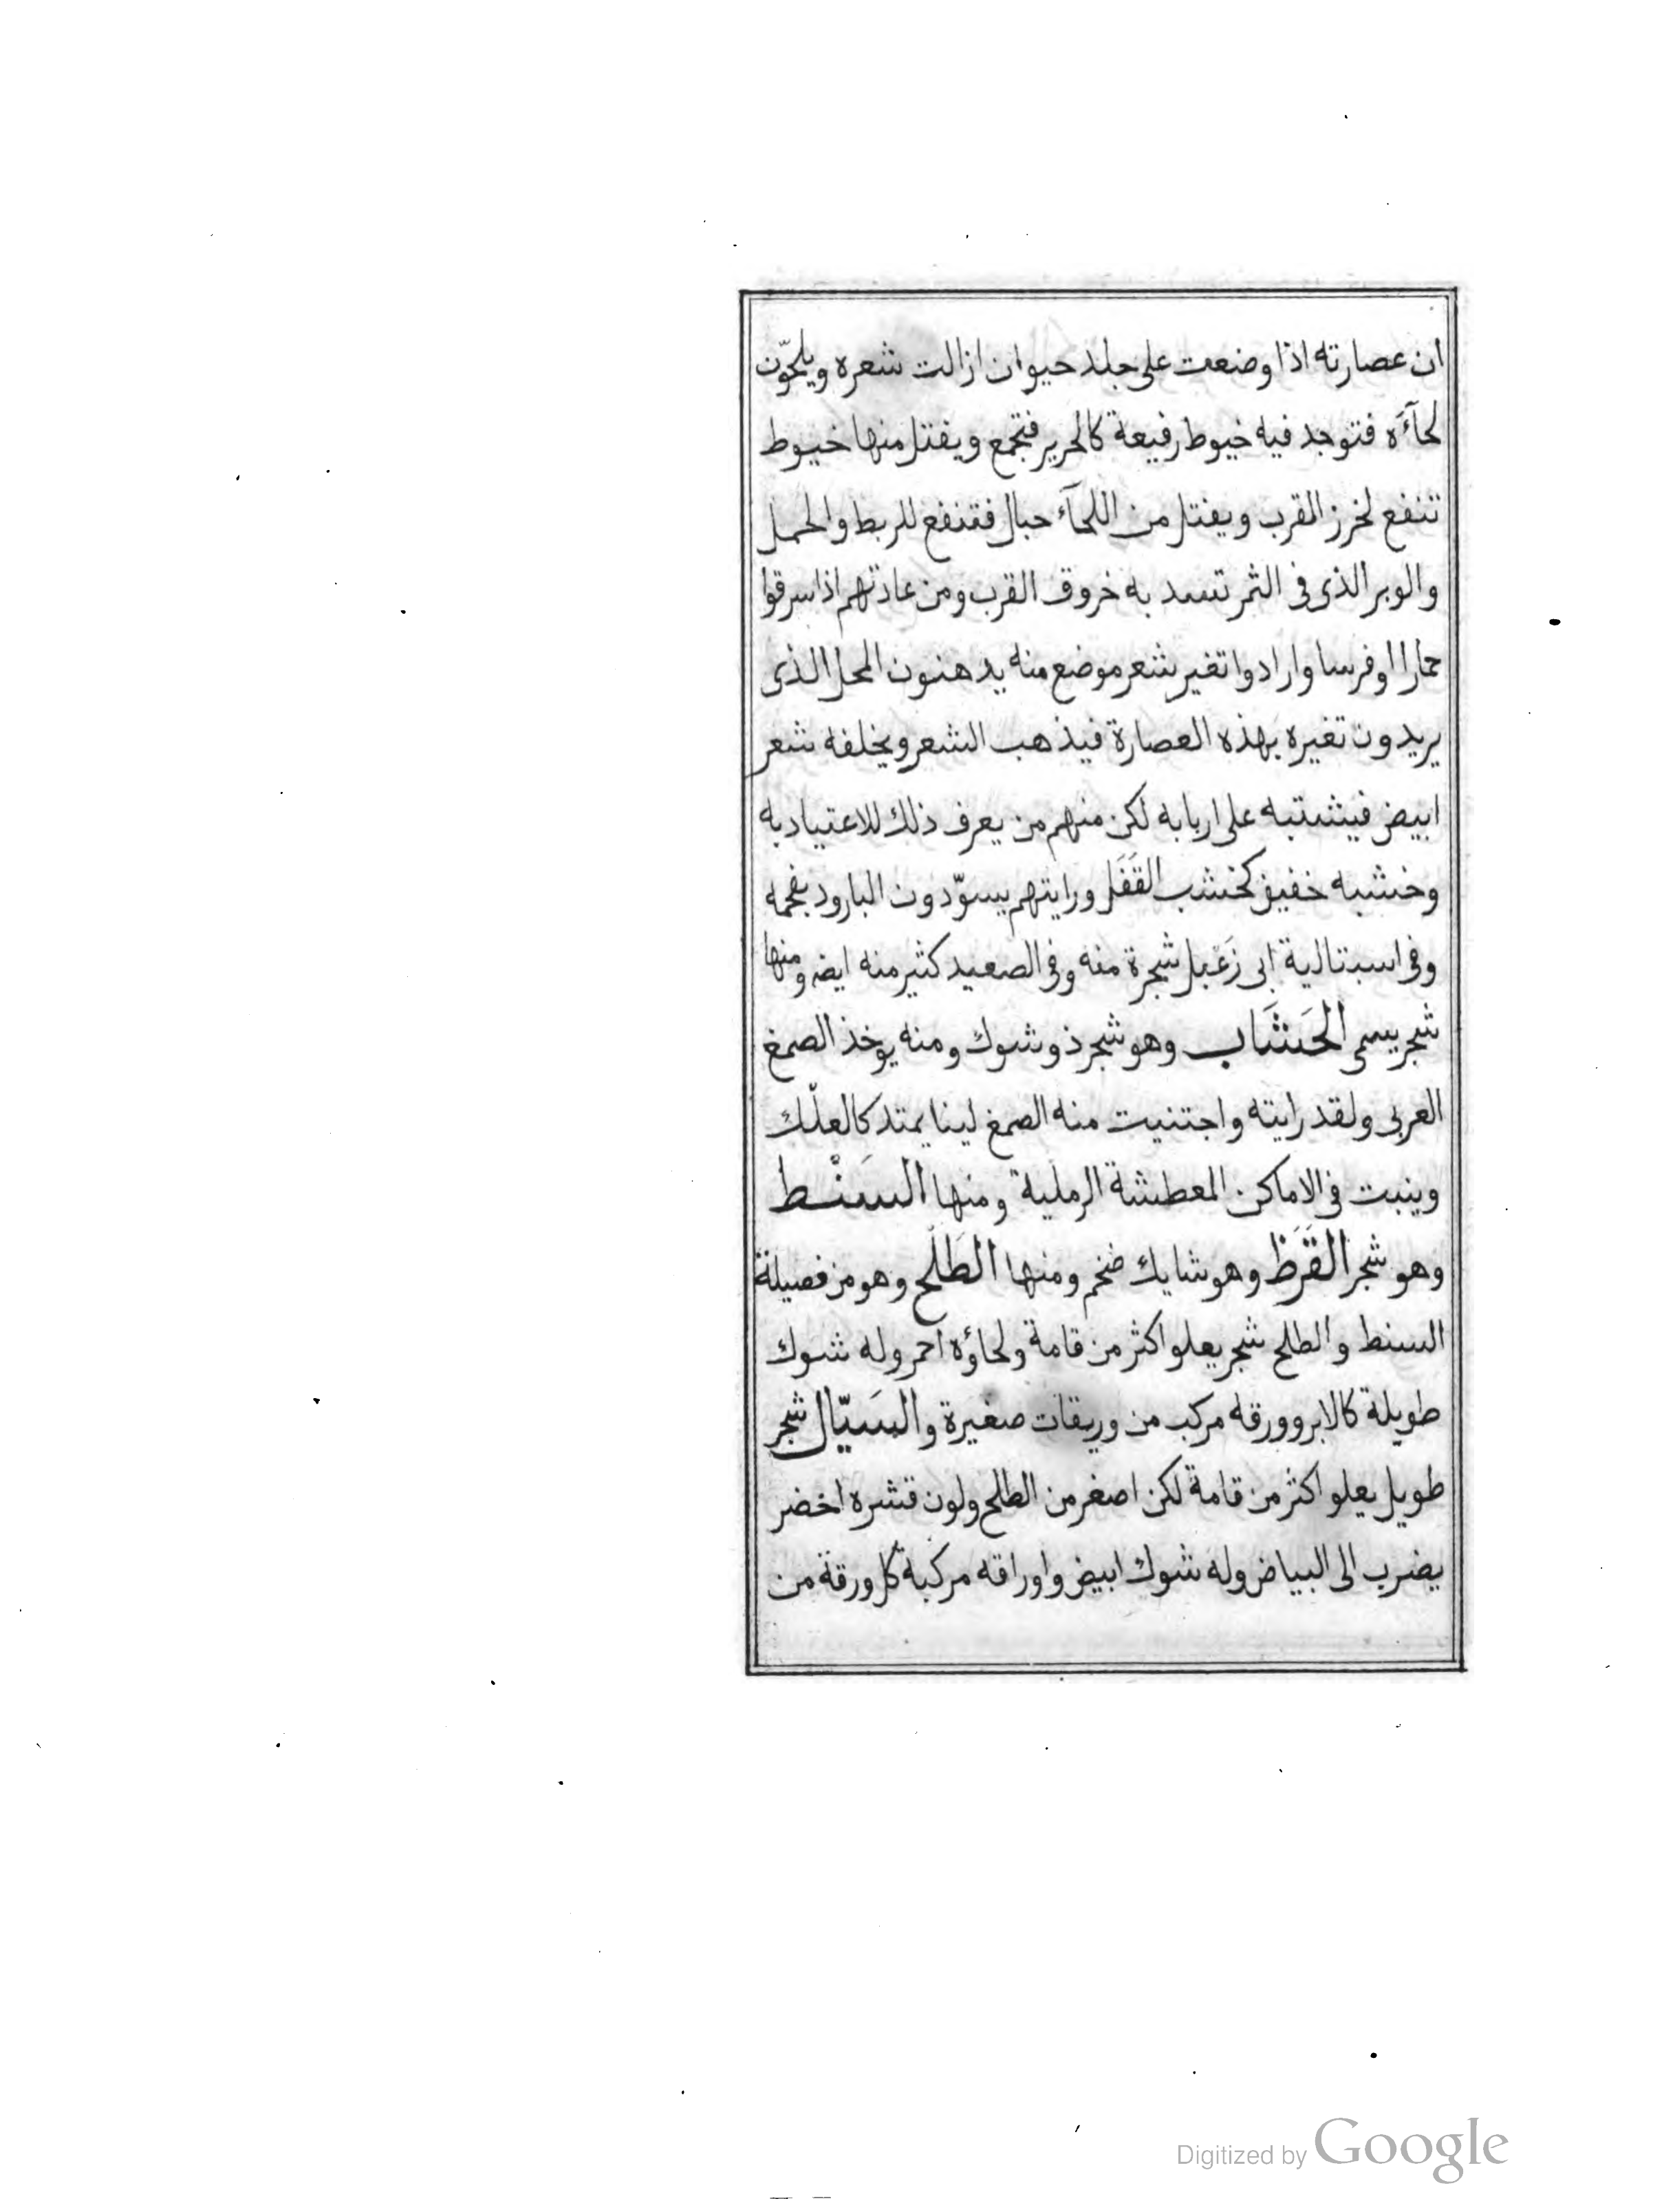 ان عصارته اذا وضعت على جلد حيوان ازالت شعره ويلحّون
لحآءَه فتوجد فيه خيوط رفيعة كالحرير فتجمع ويفتل منها خيوط
تنفع لخرز القرب ويفتل من اللحآء حبال فتنفع للربط والحمل
والوبر الذى فى الثمر تسد به خروق القرب ومن عادتهم اذا سرقوا
حمارا اوفرسا وارادوا تغير شعر موضع منه يدهنون المحل الذى
يريدون تغيره بهذه العصارة فيذهب الشعر ويخلفه شعر
ابيض فيشتبه على اربابه لكن منهم من يعرف ذلك للاعتياد به
وخشبه خفيف كخشب القَفَل ورايتهم يسوّدون البارود بفحمه
وفى اسبتالية ابى زَعْبل شجرة منه وفى الصعيد كثير منه ايضا ومنها
شجر يسمى الحَشَاب وهو شجر ذو شوك ومنه يوخذ الصمغ
العربى ولقد رايته واجتنيت منه الصمغ لينا يمتد كالعلْك
وينبت فى الاماكن المعطشة الرملية ومنها السَنْط
وهو شجر القَرَظ وهو شايك ضخم ومنها الطَلْح وهو من فصيلة
السنط والطلح شجر يعلو اكثر من قامة ولحاؤه احمر وله شوك
طويلة كالابر وورقه مركب من وريقات صغيرة والسَيّال شجر
طويل يعلو اكثر من قامة لكن اصغر من الطلح ولون قشره اخضر
يضرب الى البياض وله شوك ابيض واوراقه مركبة كل ورقة من
Digitized by Google